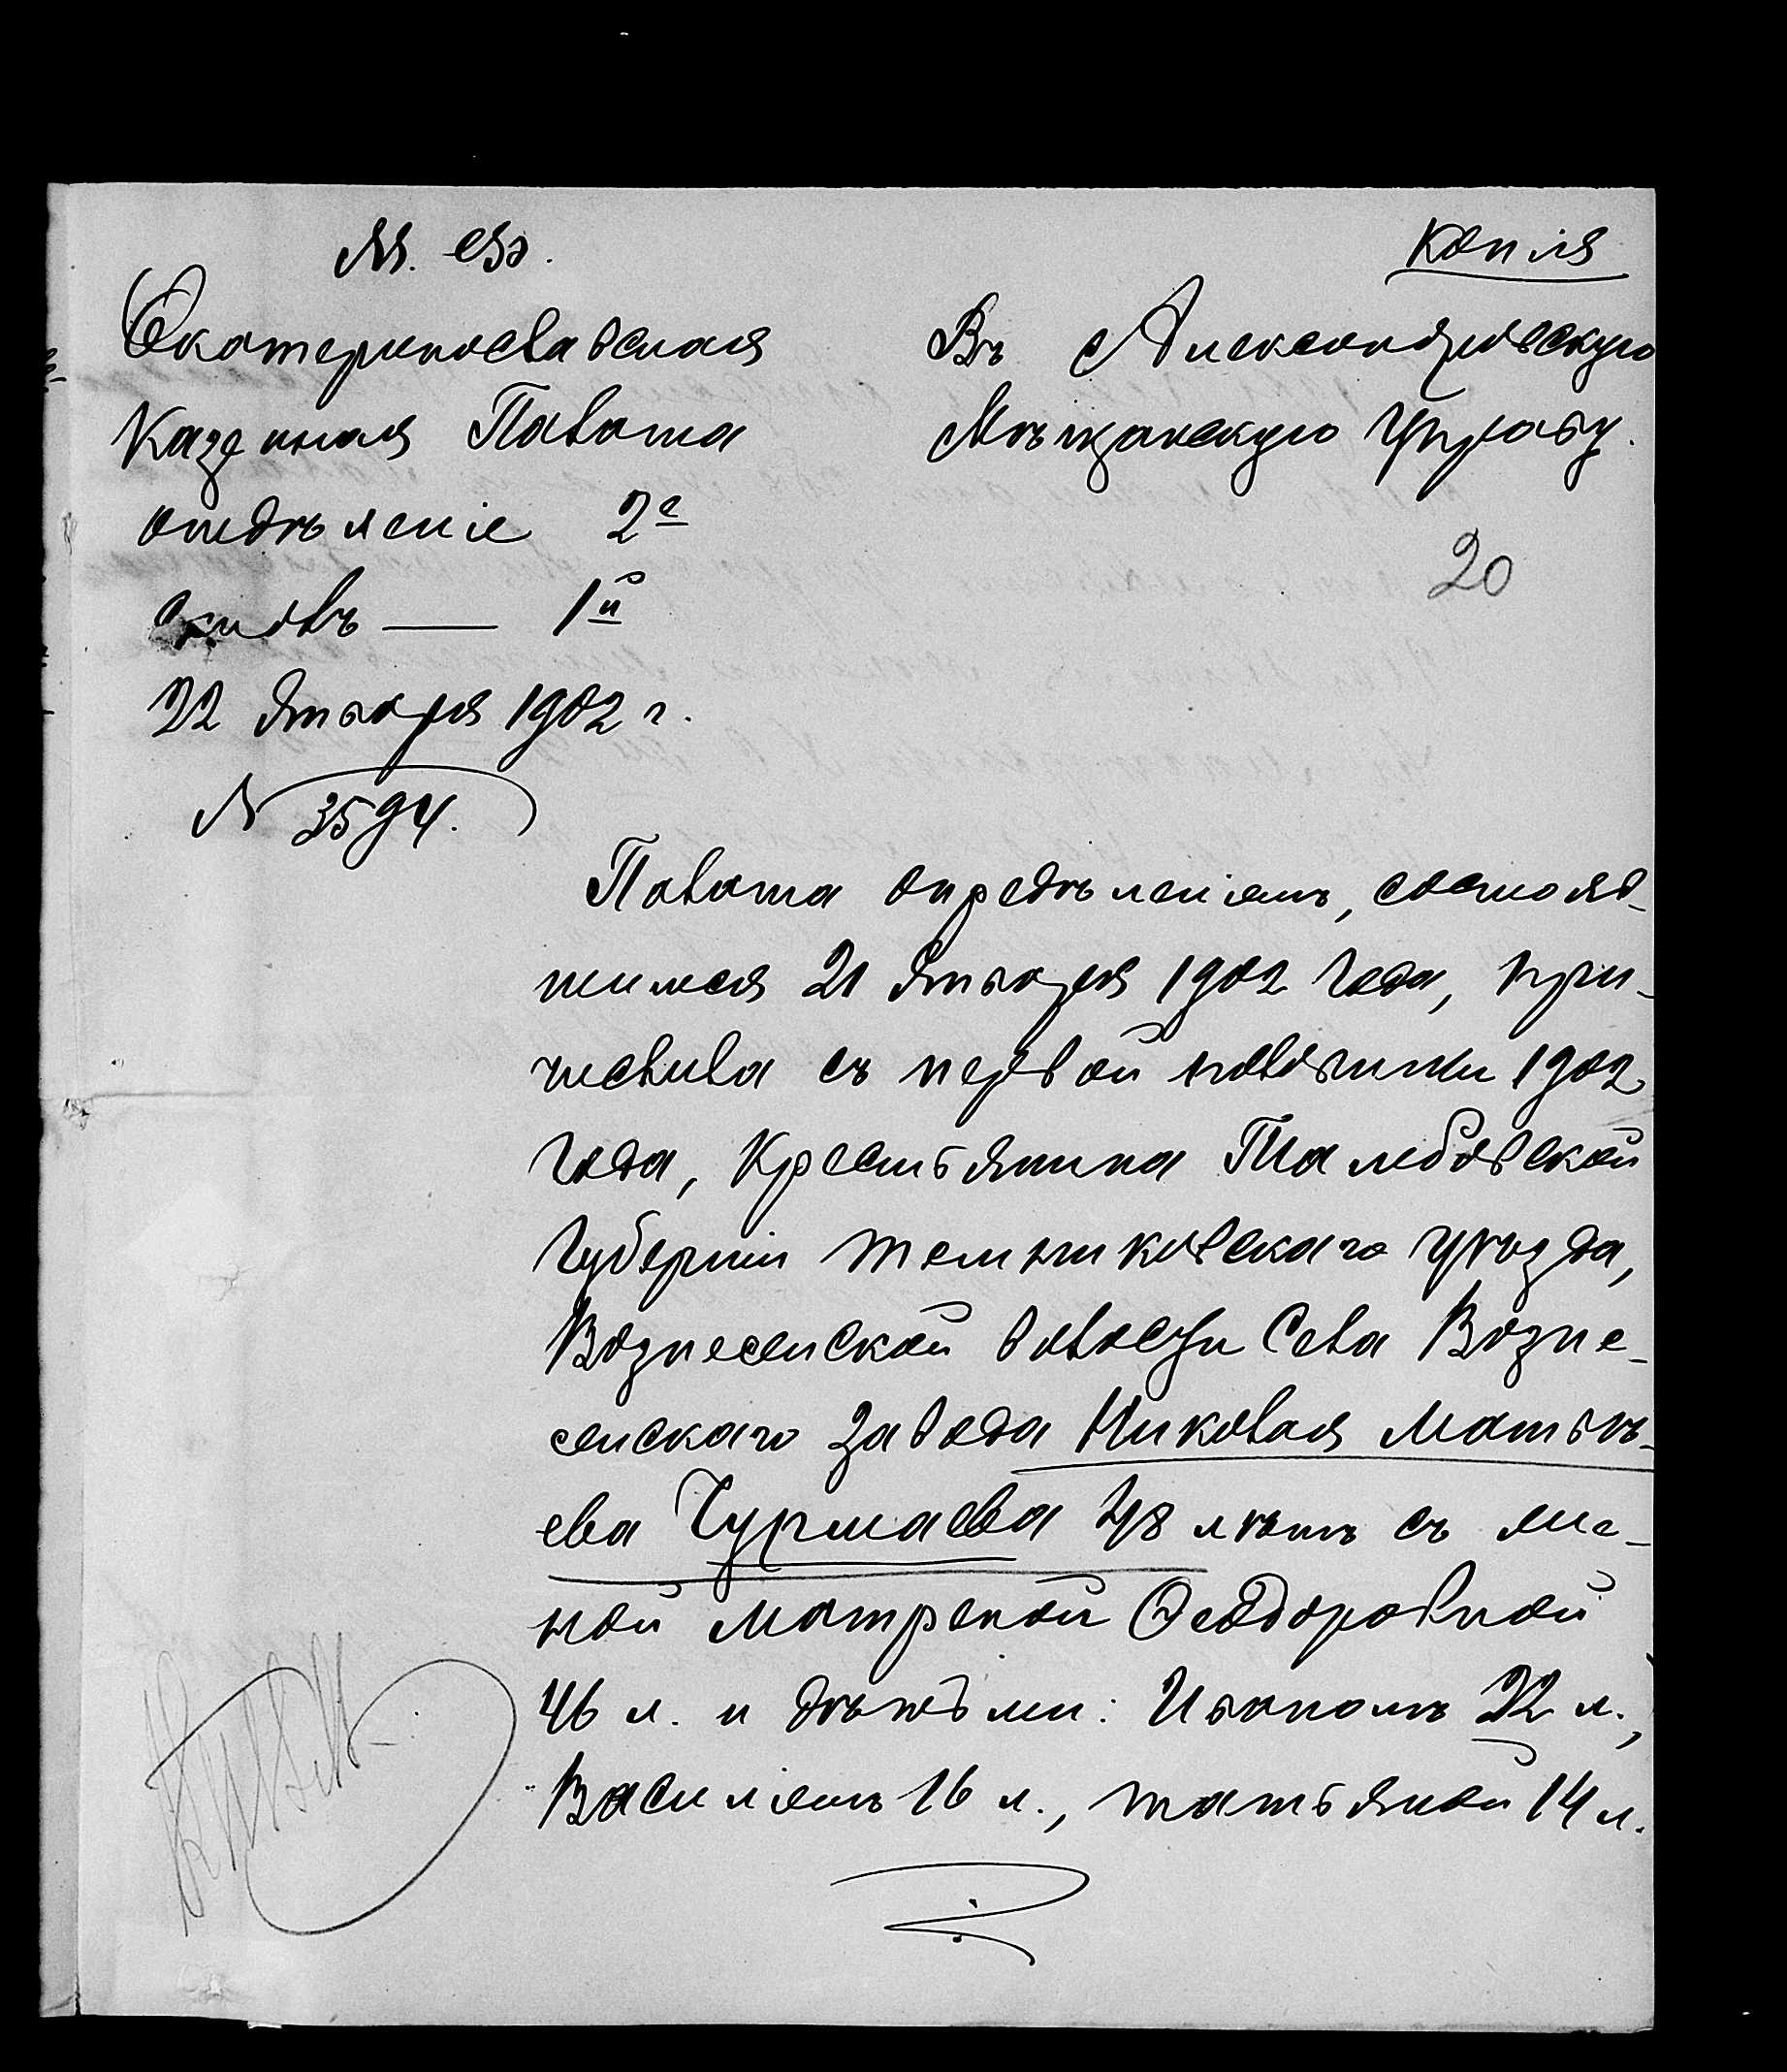 М. Ф.
Копія
Екатеринославская
Казенная Палата
отдѣленіе 2е
столъ — 1й
22 Января 1902 г.
№ 3594.
Въ Александровскую
Мѣщанскую Управу.
20
Палата опредѣленіемъ, состояв-
шимся 21 Января 1902 года, при-
числила съ первой половины 1902
года, Крестьянина Тамбовской
Губерніи Темниковскаго уѣзда,
Вознесенской волости Села Возне-
сенскаго завода Николая Матвѣ-
ева Чурмаева 48 лѣтъ съ же-
ной Матреной Ѳеодоровной
46 л. и дѣтьми: Иваномъ 22 л.,
Василіемъ 16 л., Татьяной 14 л.